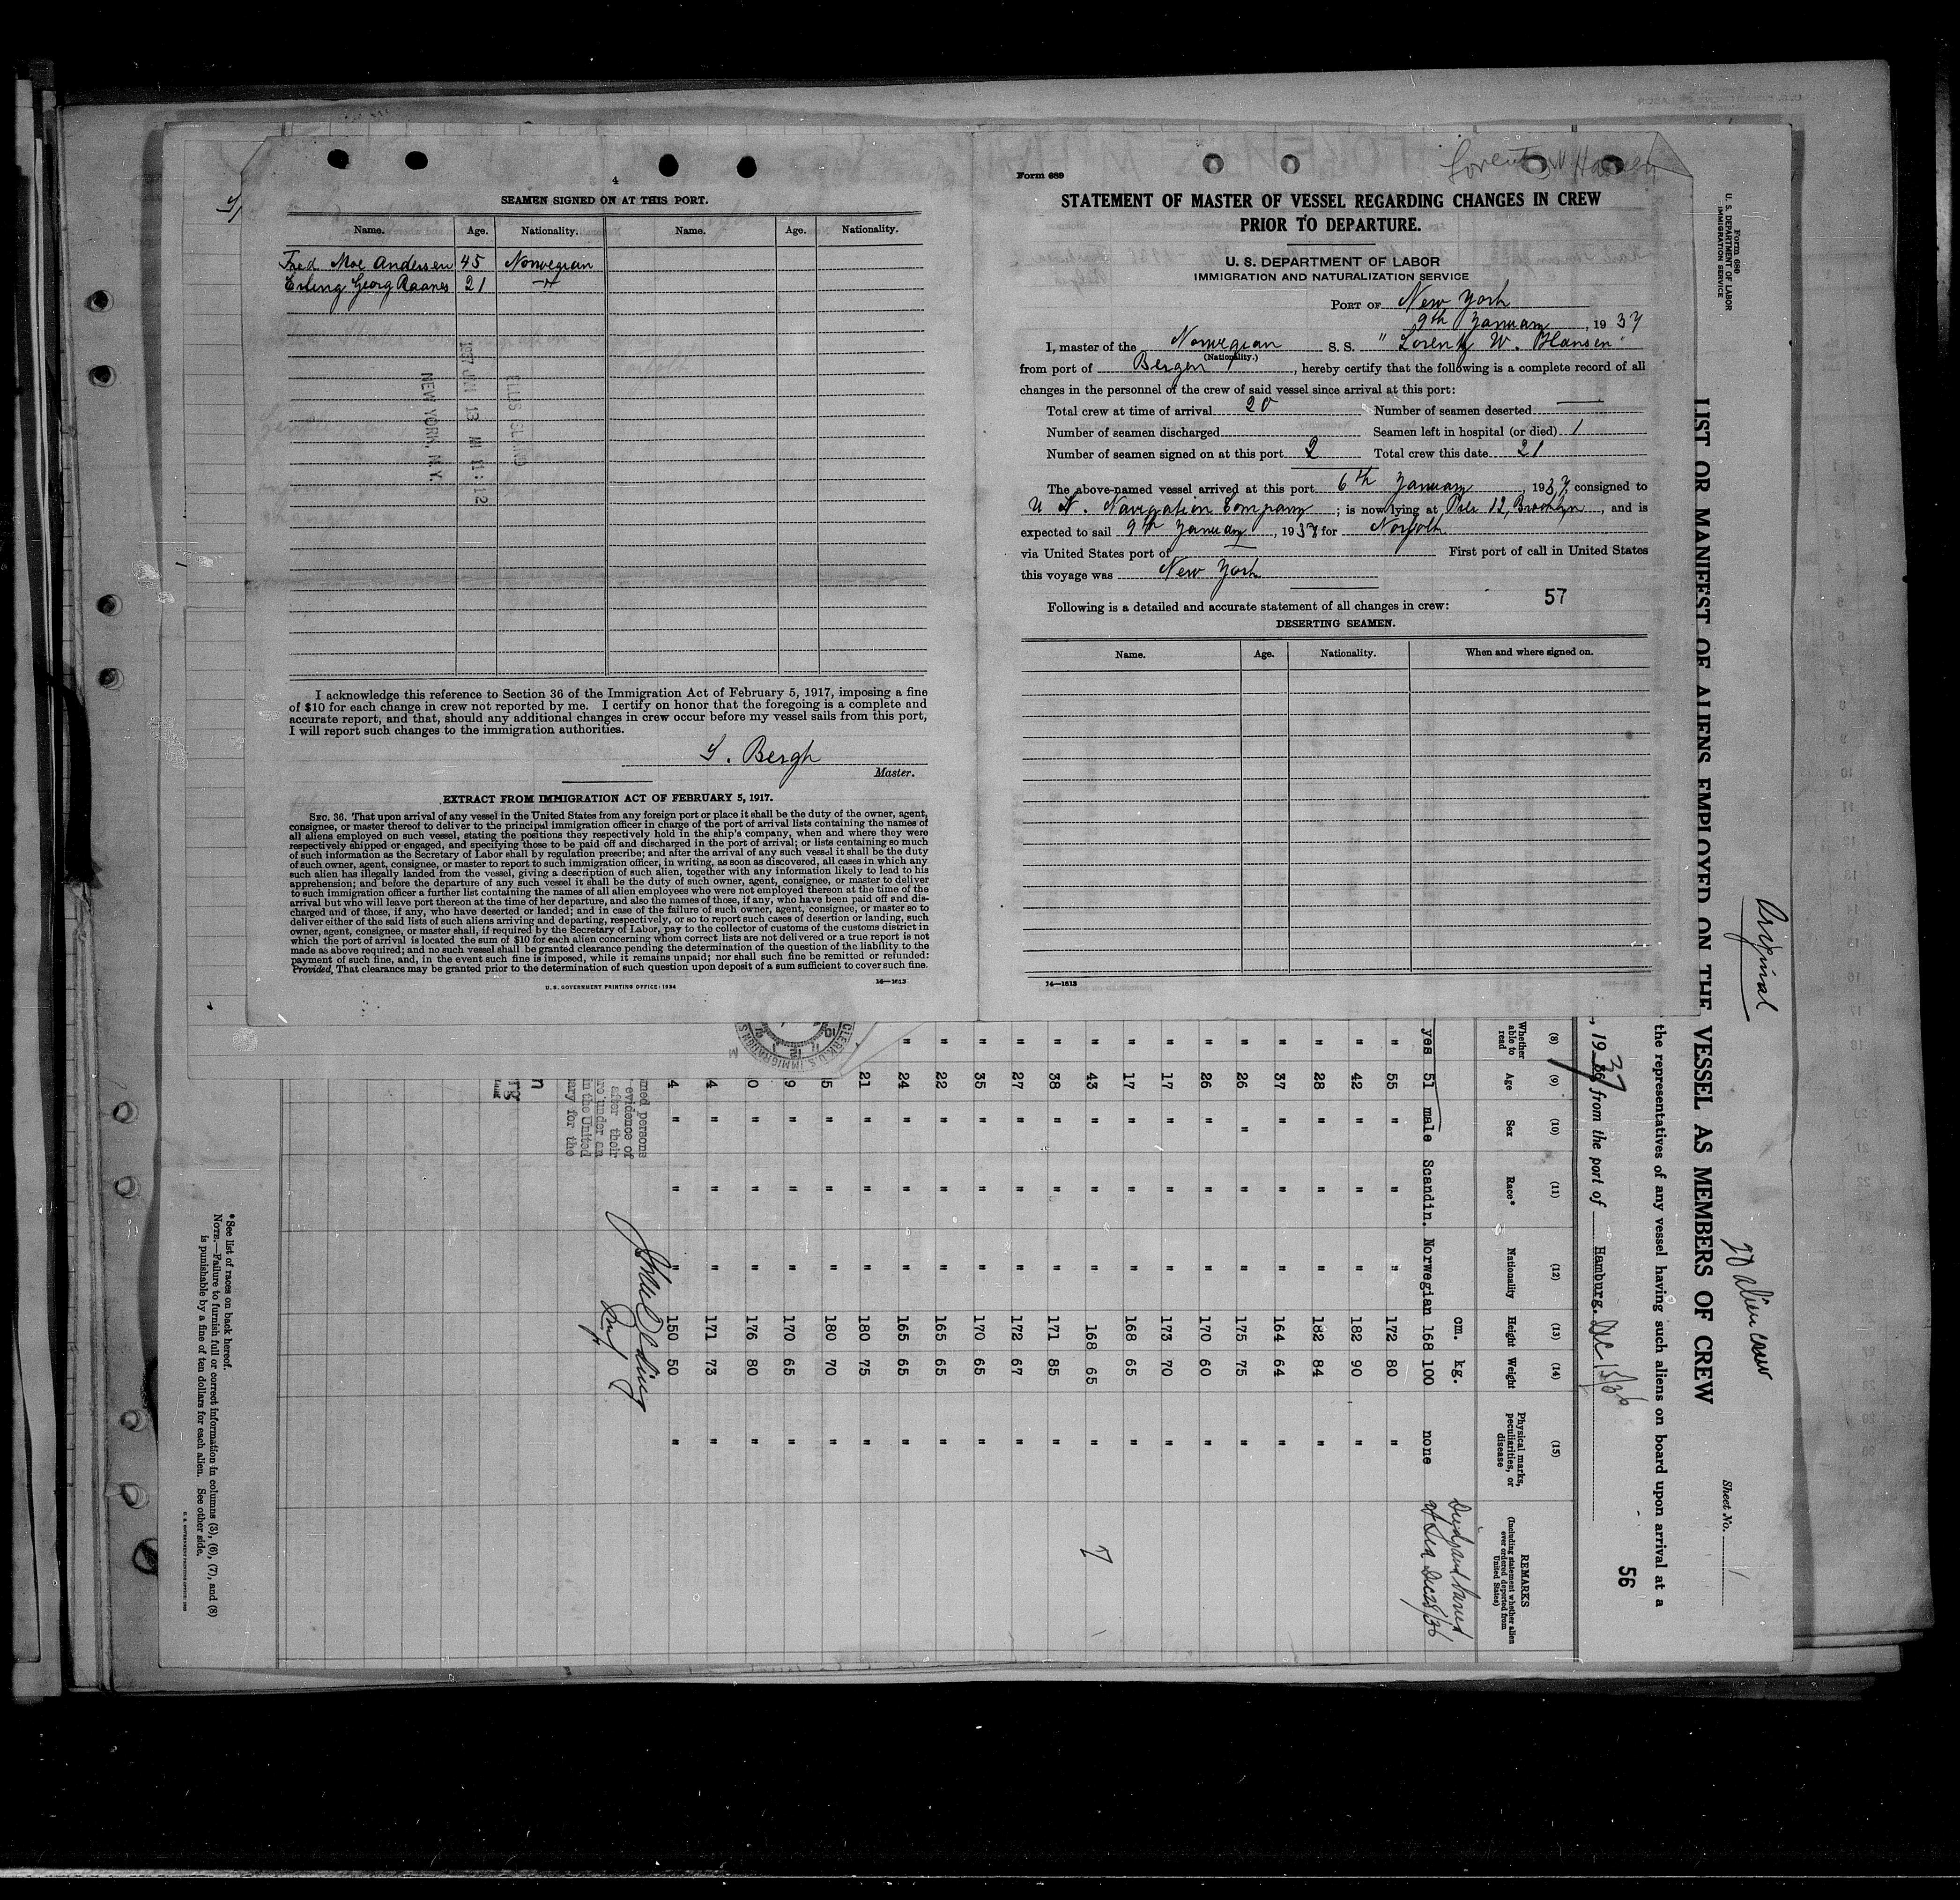 4
SEAMEN SIGNED ON AT THIS PORT.
Name. Age. Nationality. Name. Age. Nationality.
Fred Moe Anderssen 45 Norwegian
Erling Georg Raanes 21 -"-
ELLIS ISLAND
1937 JAN 13 AM 11:12
NEW YORK, N. Y.
I acknowledge this reference to Section 36 of the Immigration Act of February 5, 1917, imposing a fine
of $10 for each change in crew not reported by me. I certify on honor that the foregoing is a complete and
accurate report, and that, should any additional changes in crew occur before my vessel sails from this port,
I will report such changes to the immigration authorities.
Bergh
Master.
EXTRACT FROM IMMIGRATION ACT OF FEBRUARY 5, 1917.
SEC. 36. That upon arrival of any vessel in the United States from any foreign port or place it shall be the duty of the owner, agent,
consignee, or master thereof to deliver to the principal immigration officer in charge of the port of arrival lists containing the names of
all aliens employed on such vessel, stating the positions they respectively hold in the ship's company, when and where they were
respectively shipped or engaged, and specifying those to be paid off and discharged in the port of arrival; or lists containing so much
of such information as the Secretary of Labor shall by regulation prescribe; and after the arrival of any such vessel it shall be the duty
of such owner, agent, consignee, or master to report to such immigration officer, in writing, as soon as discovered, all cases in which any
such alien has illegally landed from the vessel, giving a description of such alien, together with any information likely to lead to his
apprehension; and before the departure of any such vessel it shall be the duty of such owner, agent, consignee, or master to deliver
to such immigration officer a further list containing the names of all alien employees who were not employed thereon at the time of the
arrival but who will leave port thereon at the time of her departure, and also the names of those, if any, who have been paid off and dis-
charged and of those, if any, who have deserted or landed; and in case of the failure of such owner, agent, consignee, or master so to
deliver either of the said lists of such aliens arriving and departing, respectively, or so to report such cases of desertion or landing, such
owner, agent, consignee, or master shall, if required by the Secretary of Labor, pay to the collector of customs of the customs district in
which the port of arrival is located the sum of $10 for each alien concerning whom correct lists are not delivered or a true report is not
made as above required; and no such vessel shall be granted clearance pending the determination of the question of the liability to the
payment of such fine, and, in the event such fine is imposed, while it remains unpaid; nor shall such fine be remitted or refunded:
Provided, That clearance may be granted prior to the determination of such question upon deposit of a sum sufficient to cover such fine.
U. S. GOVERNMENT PRINTING OFFICE: 1934 14—1613
Lorentz W Hansen
Form 689
STATEMENT OF MASTER OF VESSEL REGARDING CHANGES IN CREW
PRIOR TO DEPARTURE.
U. S. DEPARTMENT OF LABOR
IMMIGRATION AND NATURALIZATION SERVICE
PORT OF New York
9th January, 1937
I, master of the Norwegian S. S. "Lorentz W. Hansen"
(Nationality.)
from port of Bergen, hereby certify that the following is a complete record of all
changes in the personnel of the crew of said vessel since arrival at this port:
Total crew at time of arrival 20 Number of seamen deserted —
Number of seamen discharged Seamen left in hospital (or died) 1
Number of seamen signed on at this port 2 Total crew this date 21
The above-named vessel arrived at this port 6th January, 1937, consigned to
U N. Navigation Company; is now lying at Pier 12, Brooklyn, and is
expected to sail 9th January, 1937 for Norfolk
via United States port of — First port of call in United States
this voyage was New York
57
Following is a detailed and accurate statement of all changes in crew:
DESERTING SEAMEN.
Name. Age. Nationality. When and where signed on.
14—1613
Original
20 alien crew
Sheet No. 1
Form 680
U. S. DEPARTMENT OF LABOR
IMMIGRATION SERVICE
LIST OR MANIFEST OF ALIENS EMPLOYED ON THE VESSEL AS MEMBERS OF CREW
the representatives of any vessel having such aliens on board upon arrival at a
56
, 1937 from the port of Hamburg. Dec 15/36
(8) (9) (10) (11) (12) (13) (14) (15)
Whether able to read Age Sex Race* Nationality Height Weight Physical marks, peculiarities, or disease REMARKS (Including statement whether alien ever ordered deported from United States)
cm. kg.
yes 51 male Scandin. Norwegian 168 100 none Died and buried at Sea Dec 28/36
" 55 " " " 172 80 "
" 42 " " " 182 90 "
" 28 " " " 182 84 "
" 37 " " " 164 64 "
" 26 " " " 175 75 "
" 26 " " " 170 60 "
" 17 " " " 173 70 "
" 17 " " " 168 65 "
" 43 " " " 168 65 "
" 38 " " " 171 85 "
" 27 " " " 172 67 "
" 35 " " " 170 65 "
" 22 " " " 165 65 "
" 24 " " " 165 65 "
21 " " " 180 75 "
5 " " " 180 70 "
9 " " " 170 65 "
0 " " " 176 80 "
4 " " " 171 73 "
4 " " " 150 50 "
med persons
evidence of
after their
ro under an
in the United
ary for the
CLERK U. S. IMMIGRATION
*See list of races on back hereof.
NOTE.—Failure to furnish full or correct information in columns (3), (6), (7), and (8)
is punishable by a fine of ten dollars for each alien. See other side.